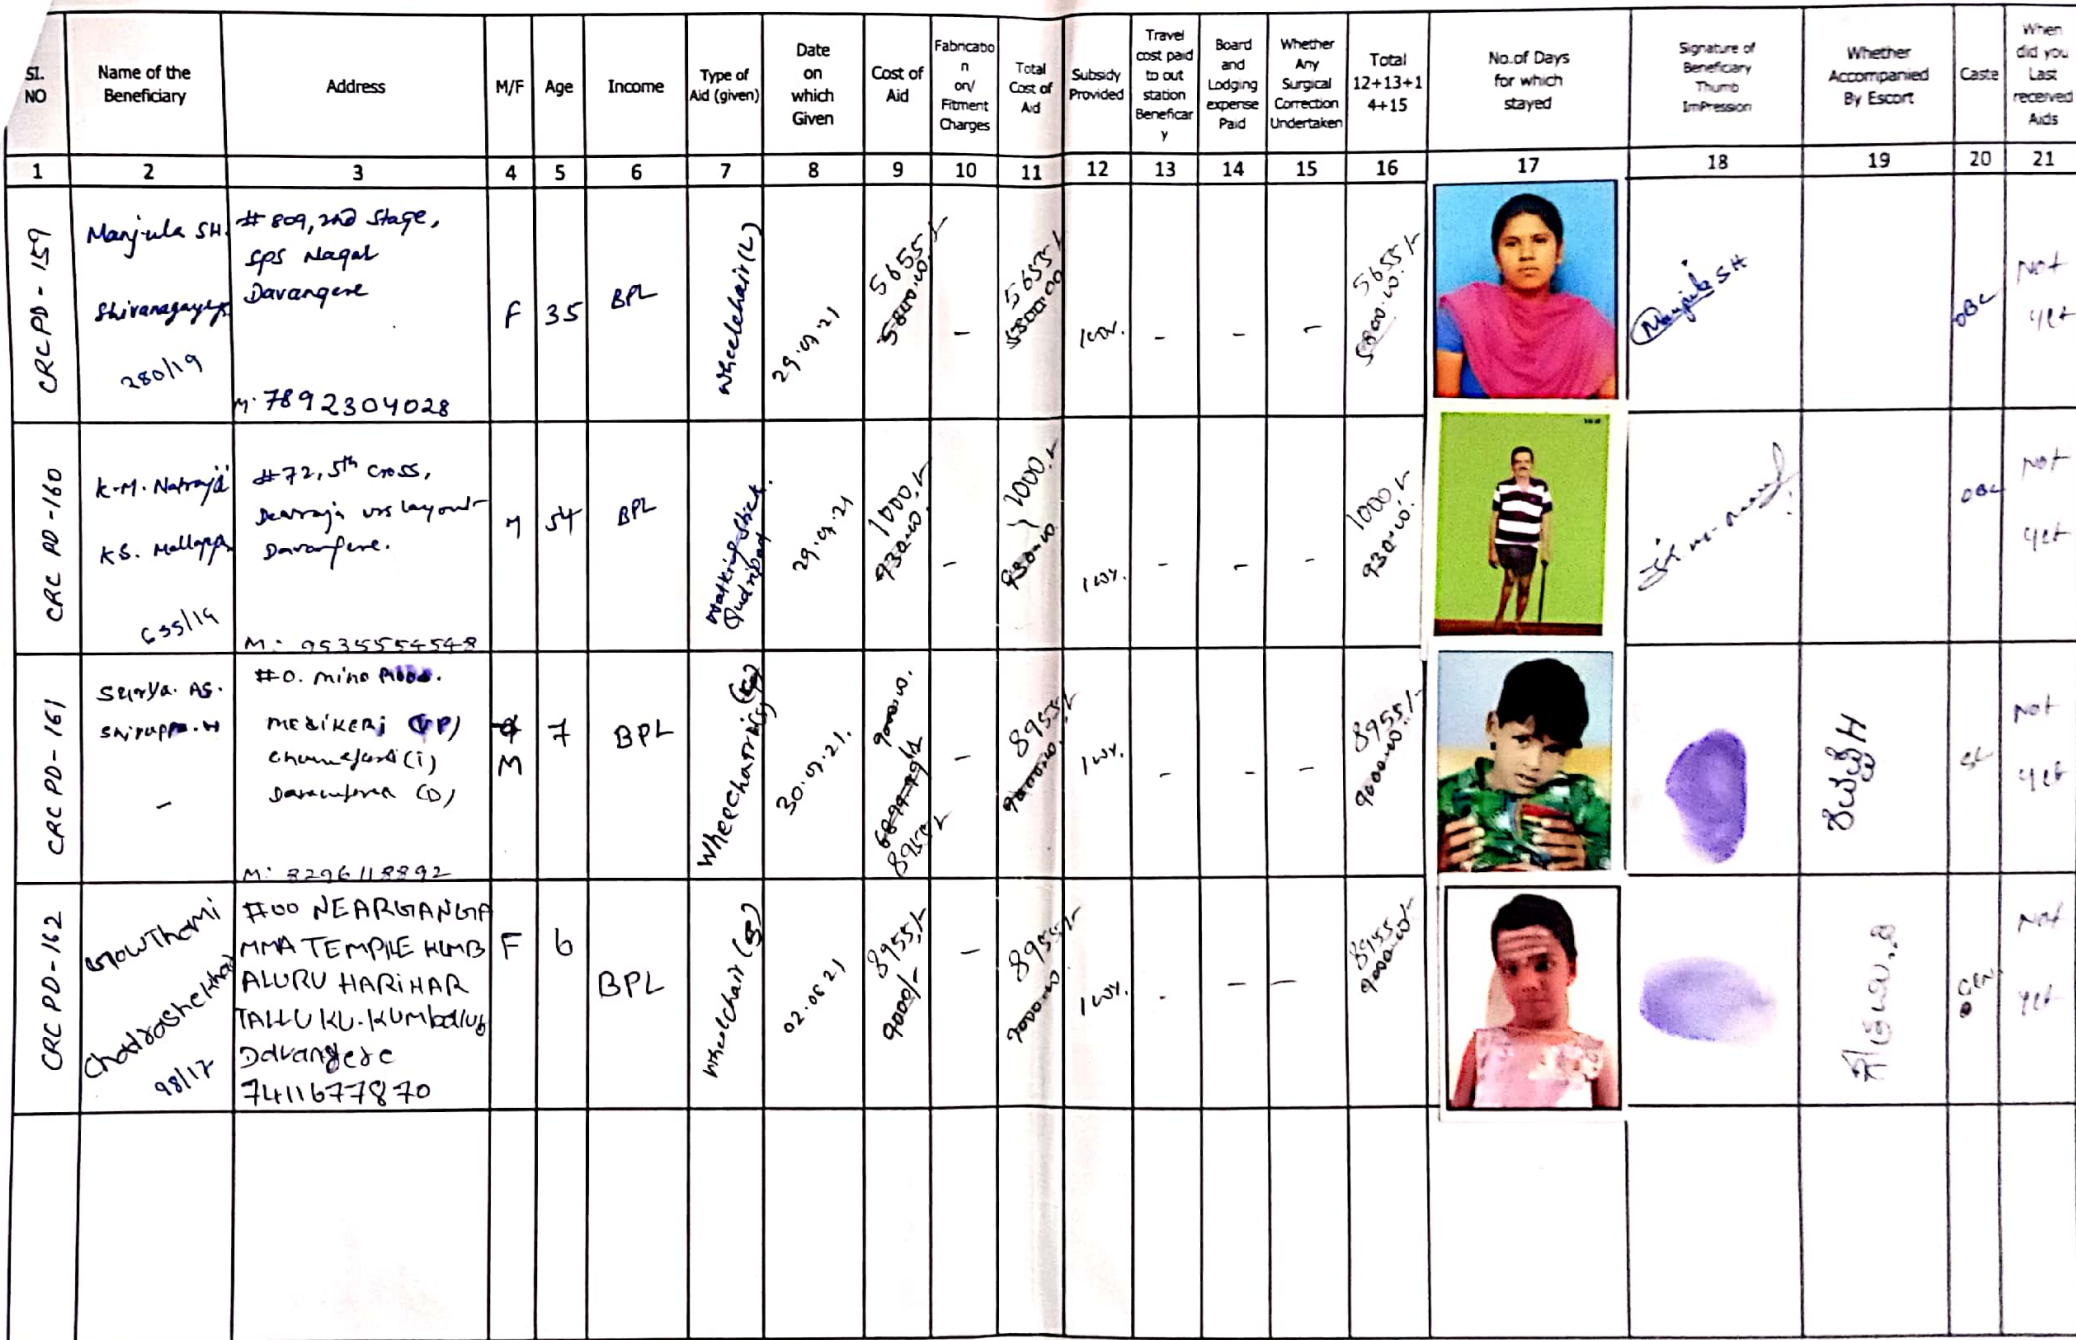 SI. NO
Name of the Beneficiary
Address
M/F
Age
Income
Type of Aid (given)
Date on which Given
Cost of Aid
Fabricatio n on/ Fitment Charges
Total Cost of Aid
Subsidy Provided
Travel cost paid to out station Beneficar y
Board and Lodging expense Paid
Whether Any Surgical Correction Undertaken
Total 12+13+1 4+15
No.of Days for which stayed
Signature of Beneficiary Thumb ImPression
Whether Accompanied By Escort
Caste
When did you Last received Aids
1 2 3 4 5 6 7 8 9 10 11 12 13 14 15 16 17 18 19 20 21
CRC PD - 159
Manjula SH.
280/19
# 809, 2nd Stage,
SPS Nagar
Davangere
M: 7892304028
F
35
BPL
Wheelchair (L)
29.07.21
5655/-
5800.00
-
5655/-
5800.00
100%.
-
-
-
5655/-
5800.00
Manjula SH
OBC
Not
yet
CRC PD -160
K.M. Natraja
KS. Mallappa
635/19
#72, 5th cross,
Devraja urs layout
Davangere.
M: 9535554548
M
54
BPL
Walking Stick
29.07.21
1000/-
930.00
-
1000/-
930.00
100%.
-
-
-
1000/-
930.00
OBC
Not
yet
CRC PD-161
Surya. AS.
-
#0.
MEDIKERI
(D)
M: 8296118892
M
7
BPL
30.07.21.
9000.00
8955/-
-
8955/-
9000.00
100%.
-
-
-
8955/-
9000.00
SC
Not
yet
CRC PD-162
GowThami
98/17
#00 NEARGANGA
MMA TEMPLE KUMB
ALURU HARIHAR
TALLUKU.
Davangere
7411677870
F
6
BPL
Wheelchair
02.08.21
8955/-
9000/-
-
8955/-
9000.00
100%.
-
-
-
8955/-
9000.00
GEN
Not
yet